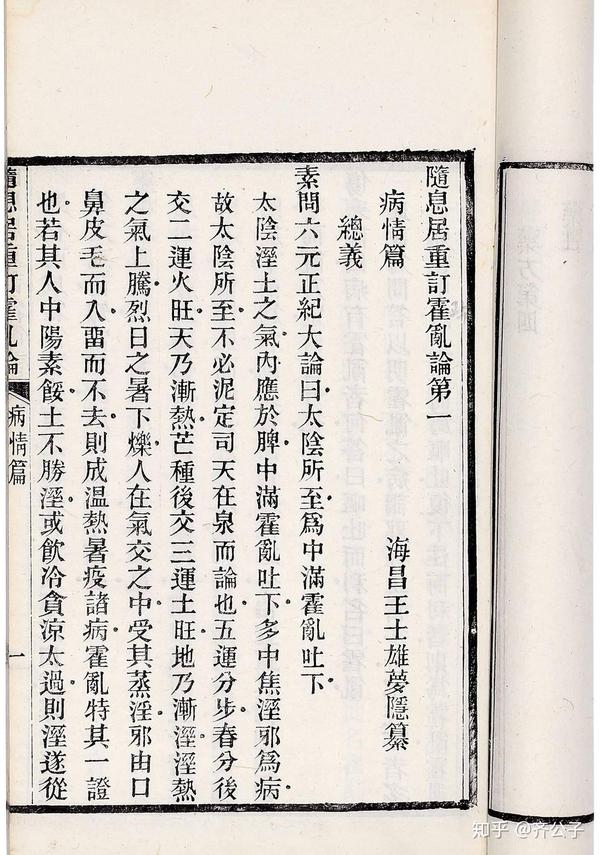 隨息居重訂霍亂論第一
病情篇　海昌王士雄夢隱纂
總義
素問六元正紀大論曰太陰所至爲中滿霍亂吐下
太陰溼土之氣內應於脾中滿霍亂吐下多中焦溼邪爲病
故太陰所至不必泥定司天在泉而論也五運分步春分後
交二運火旺天乃漸熱芒種後交三運土旺地乃漸溼溼熱
之氣上騰烈日之暑下爍人在氣交之中受其蒸淫邪由口
鼻皮毛而入畱而不去則成溫熱暑疫諸病霍亂特其一證
也若其人中陽素餒土不勝溼或飲冷貪涼太過則溼遂從
隨息居重訂霍亂論
病情篇
一
知乎 @齐公子